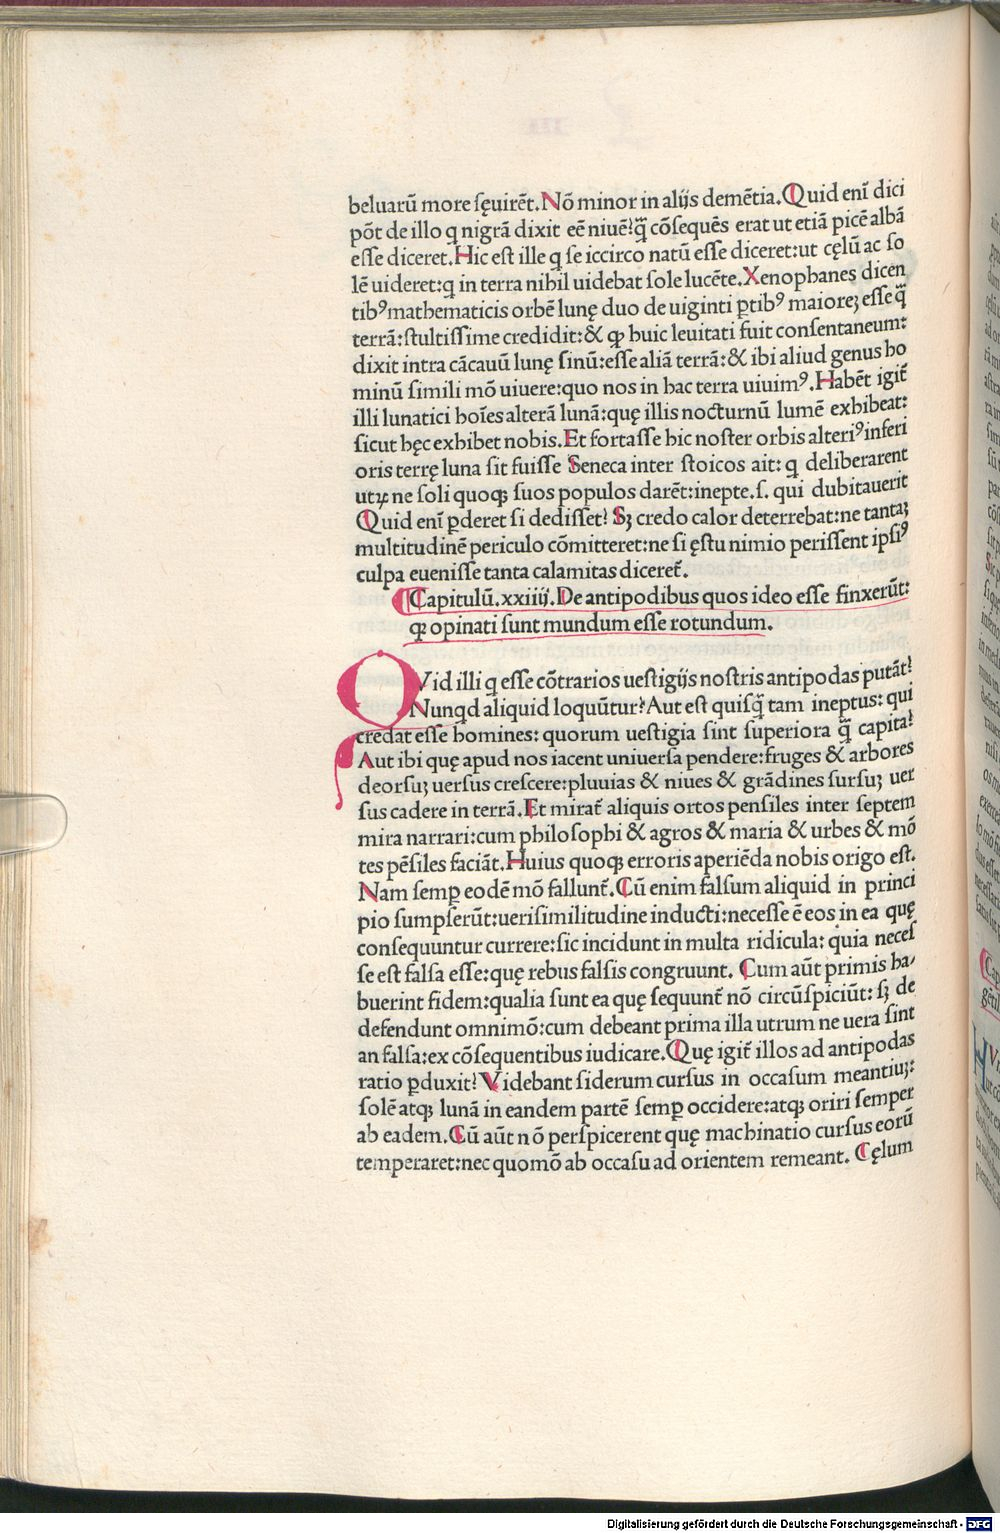 beluarū more sęuirēt. Nō minor in alijs demētia. Quid enī dici
pōt de illo q nigrā dixit eē niuē? q̄ cōsequēs erat ut etiā picē albā
esse diceret. Hic est ille q se iccirco natū esse diceret: ut cęlū ac so
lē uideret: q in terra nihil uidebat sole lucēte. Xenophanes dicen
tibꝰ mathematicis orbē lunę duo de uiginti ꝑtibꝰ maioreꝫ esse q̄
terrā: stultissime credidit: & ꝙ huic leuitati fuit consentaneum:
dixit intra cācauū lunę sinū: esse aliā terrā: & ibi aliud genus ho
minū simili mō uiuere: quo nos in hac terra uiuimꝰ. Habēt igit̄
illi lunatici hoīes alterā lunā: quę illis nocturnū lumē exhibeat:
sicut hęc exhibet nobis. Et fortasse hic noster orbis alteriꝰ inferi
oris terrę luna sit fuisse Seneca inter stoicos ait: q deliberarent
utꝝ ne soli quoqꝫ suos populos darēt: inepte. s. qui dubitauerit
Quid enī ꝑderet si dedisset? Sꝫ credo calor deterrebat: ne tantaꝫ
multitudinē periculo cōmitteret: ne si ęstu nimio perissent ipsiꝰ
culpa euenisse tanta calamitas diceret̄.
Capitulū. xxiiij. De antipodibus quos ideo esse finxerūt:
ꝙ opinati sunt mundum esse rotundum.
QVid illi q esse cōtrarios uestigijs nostris antipodas putāt?
Nunqd aliquid loquūtur? Aut est quisq̄ tam ineptus: qui
credat esse homines: quorum uestigia sint superiora q̄ capita?
Aut ibi quę apud nos iacent uniuersa pendere: fruges & arbores
deorsuꝫ uersus crescere: pluuias & niues & grādines sursuꝫ uer
sus cadere in terrā. Et mirat̄ aliquis ortos pensiles inter septem
mira narrari: cum philosophi & agros & maria & urbes & mō
tes pēsiles faciāt. Huius quoqꝫ erroris aperiēda nobis origo est.
Nam semꝑ eodē mō fallunt̄. Cū enim falsum aliquid in princi
pio sumpserūt: uerisimilitudine inducti: necesse ē eos in ea quę
consequuntur currere: sic incidunt in multa ridicula: quia neces
se est falsa esse: quę rebus falsis congruunt. Cum aūt primis ha-
buerint fidem: qualia sunt ea quę sequunt̄ nō circūspiciūt: sꝫ de
defendunt omnimō: cum debeant prima illa utrum ne uera sint
an falsa: ex cōsequentibus iudicare. Quę igit̄ illos ad antipodas
ratio ꝑduxit? Videbant siderum cursus in occasum meantiuꝫ:
solē atqꝫ lunā in eandem partē semꝑ occidere: atqꝫ oriri semper
ab eadem. Cū aūt nō perspicerent quę machinatio cursus eorū
temperaret: nec quomō ab occasu ad orientem remeant. Cęlum
Digitalisierung gefördert durch die Deutsche Forschungsgemeinschaft - DFG